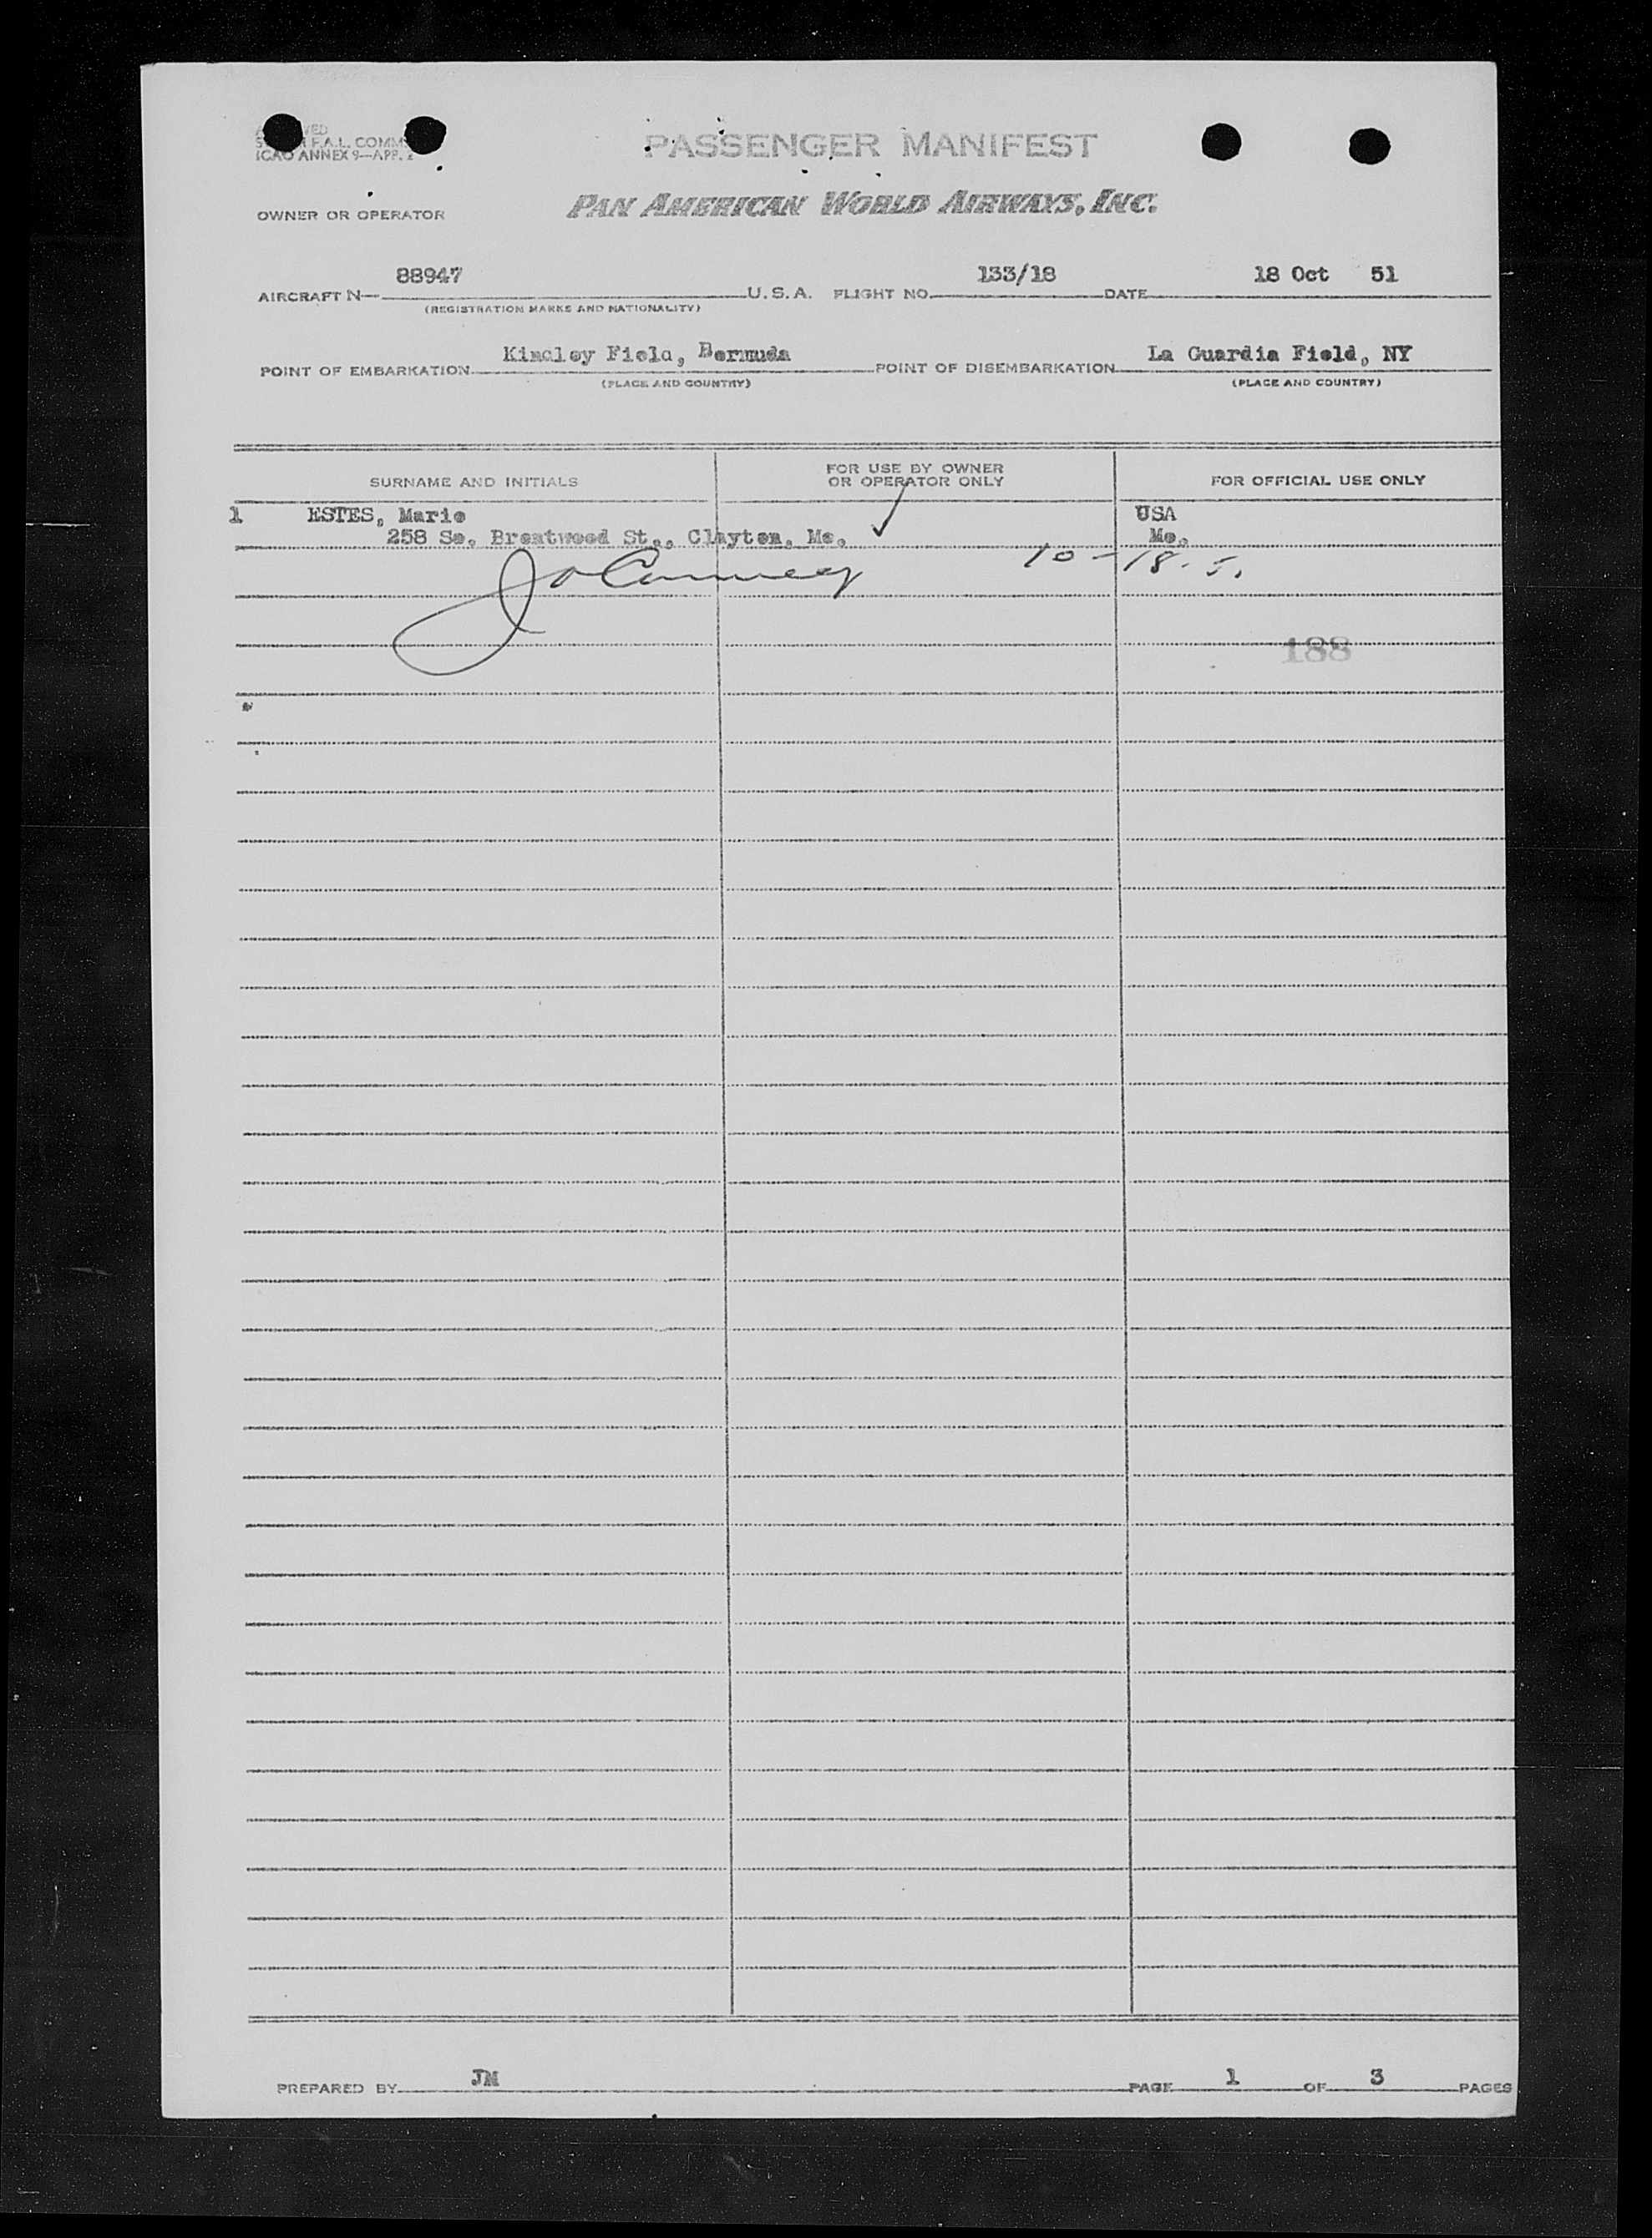 PASSENGER MANIFEST
F.A.L. COMM.
ICAO ANNEX 9—APP. 2
OWNER OR OPERATOR PAN AMERICAN WORLD AIRWAYS, INC.
AIRCRAFT N— 88947 U.S.A. FLIGHT NO. 133/18 DATE 18 Oct 51
(REGISTRATION MARKS AND NATIONALITY)
POINT OF EMBARKATION Kindley Field, Bermuda POINT OF DISEMBARKATION La Guardia Field, NY
(PLACE AND COUNTRY) (PLACE AND COUNTRY)
SURNAME AND INITIALS FOR USE BY OWNER OR OPERATOR ONLY FOR OFFICIAL USE ONLY
1 ESTES, Marie USA
258 So. Brentwood St., Clayton, Mo. Mo.
10-18-51
188
PREPARED BY JM PAGE 1 OF 3 PAGES